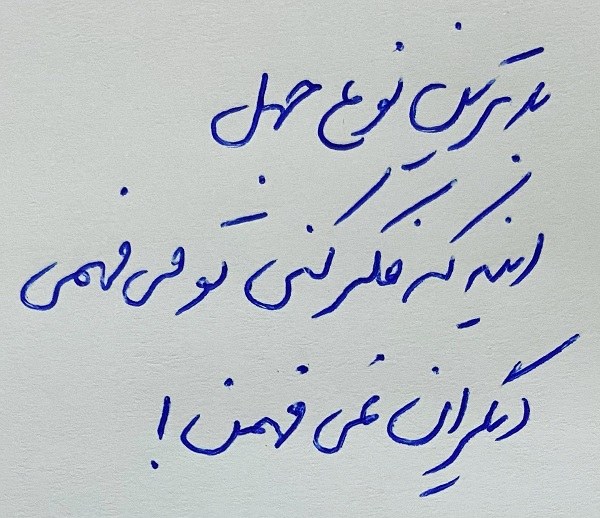 بدترین نوع جهل
اینه که فکر کنی تو می فهمی
دیگران نمی فهمن!